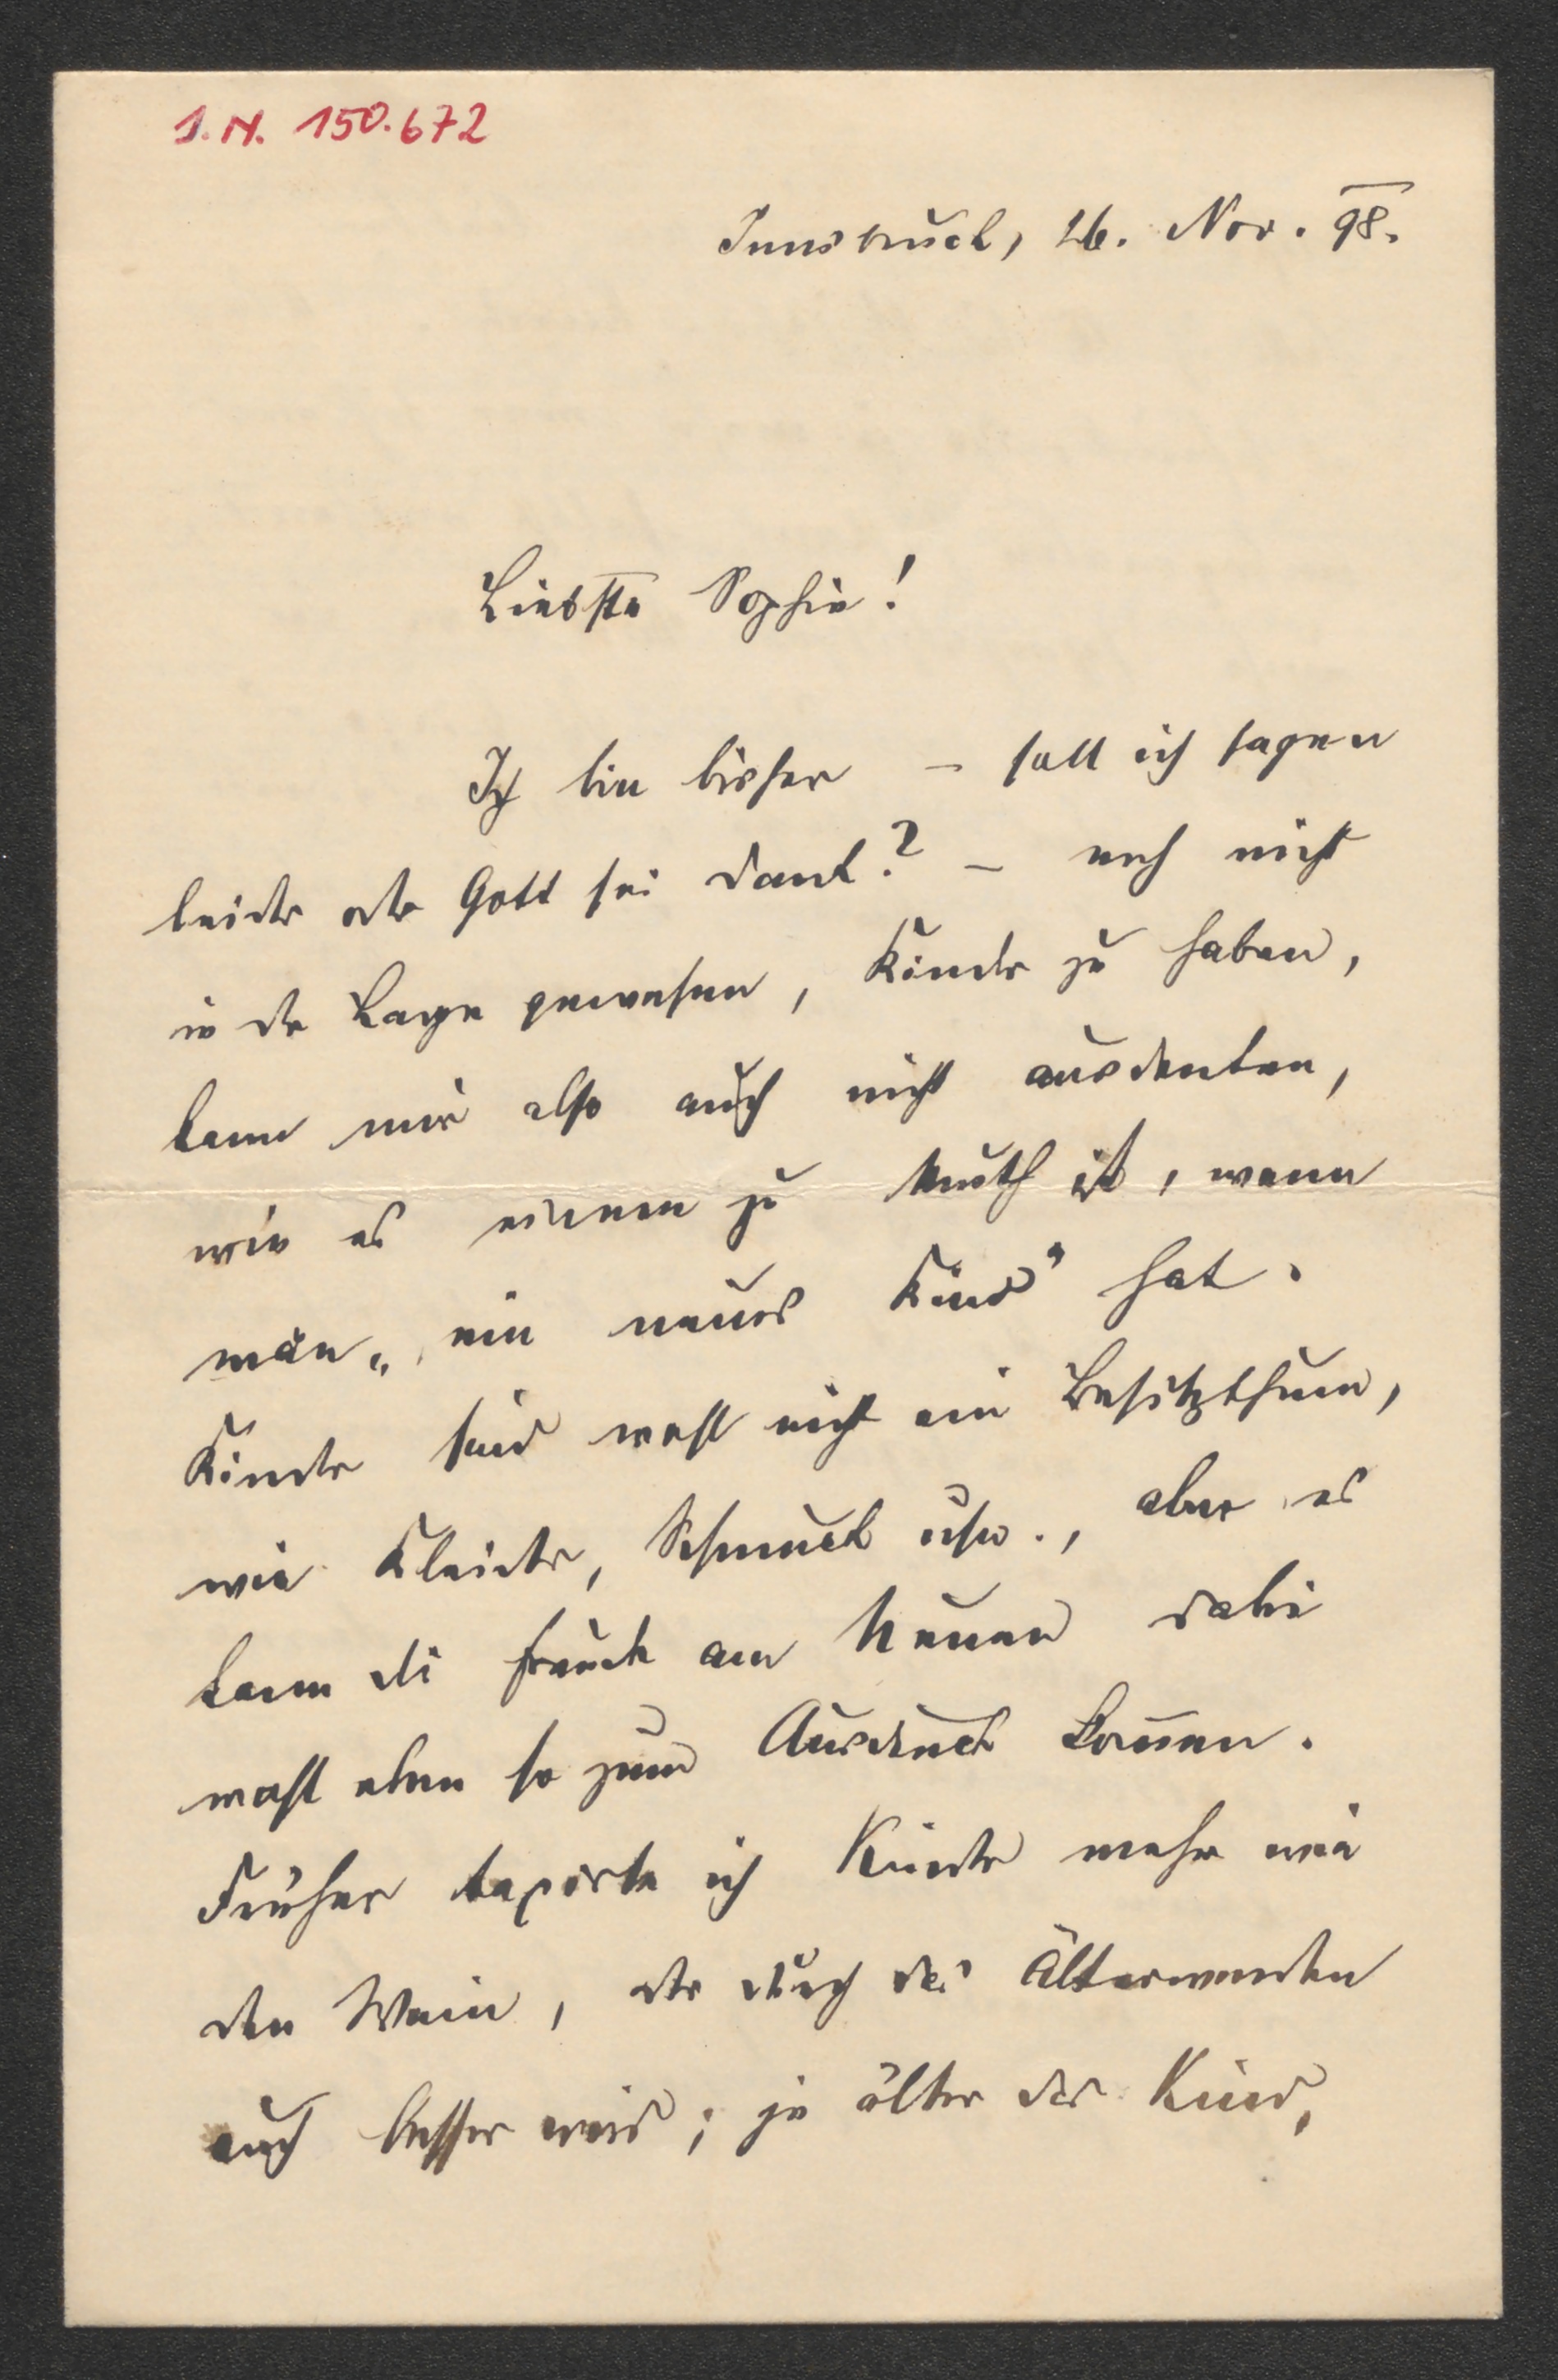 I. N. 150.672
Innsbruck, 26. Nov. 98.
Liebste Sophie!
Ich bin bisher – soll ich sagen
leider oder Gott sei Dank? – noch nicht
in der Lage gewesen, Kinder zu haben,
kann mir also auch nicht ausdenken,
wie es einem zu Muth ist, wenn
man „ein neues Kind" hat.
Kinder sind wohl nicht ein Besitzthum,
wie Kleider, Schmuck usw., aber es
kann die Freude am Neuen dabei
wohl eben so zum Ausdruck kommen.
Früher taxirte ich Kinder mehr wie
den Wein, der durch das Älterwerden
auch besser wird; je älter das Kind,